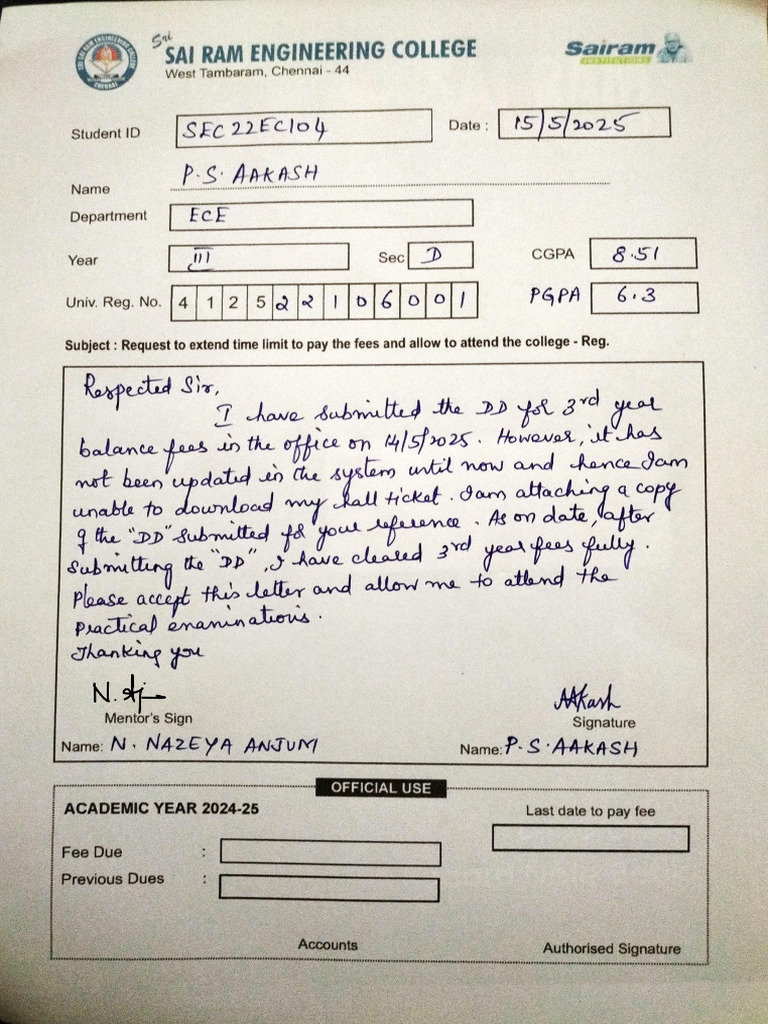 Sri
SAI RAM ENGINEERING COLLEGE
West Tambaram, Chennai - 44
Sairam
INSTITUTIONS
Student ID SEC22EC104 Date : 15/5/2025
Name P.S. AAKASH
Department ECE
Year III Sec D CGPA 8.51
Univ. Reg. No. 4 1 2 5 2 2 1 0 6 0 0 1 PGPA 6.3
Subject : Request to extend time limit to pay the fees and allow to attend the college - Reg.
Respected Sir,
I have submitted the DD for 3rd year
balance fees in the office on 14/5/2025. However, it has
not been updated in the system until now and hence I am
unable to download my hall ticket. I am attaching a copy
of the "DD" submitted for your reference. As on date, after
submitting the "DD", I have cleared 3rd year fees fully.
Please accept this letter and allow me to attend the
Practical examinations.
Thanking you
N. AAKash
Mentor's Sign Signature
Name: N. NAZEYA ANJUM Name: P.S. AAKASH
OFFICIAL USE
ACADEMIC YEAR 2024-25 Last date to pay fee
Fee Due :
Previous Dues :
Accounts Authorised Signature